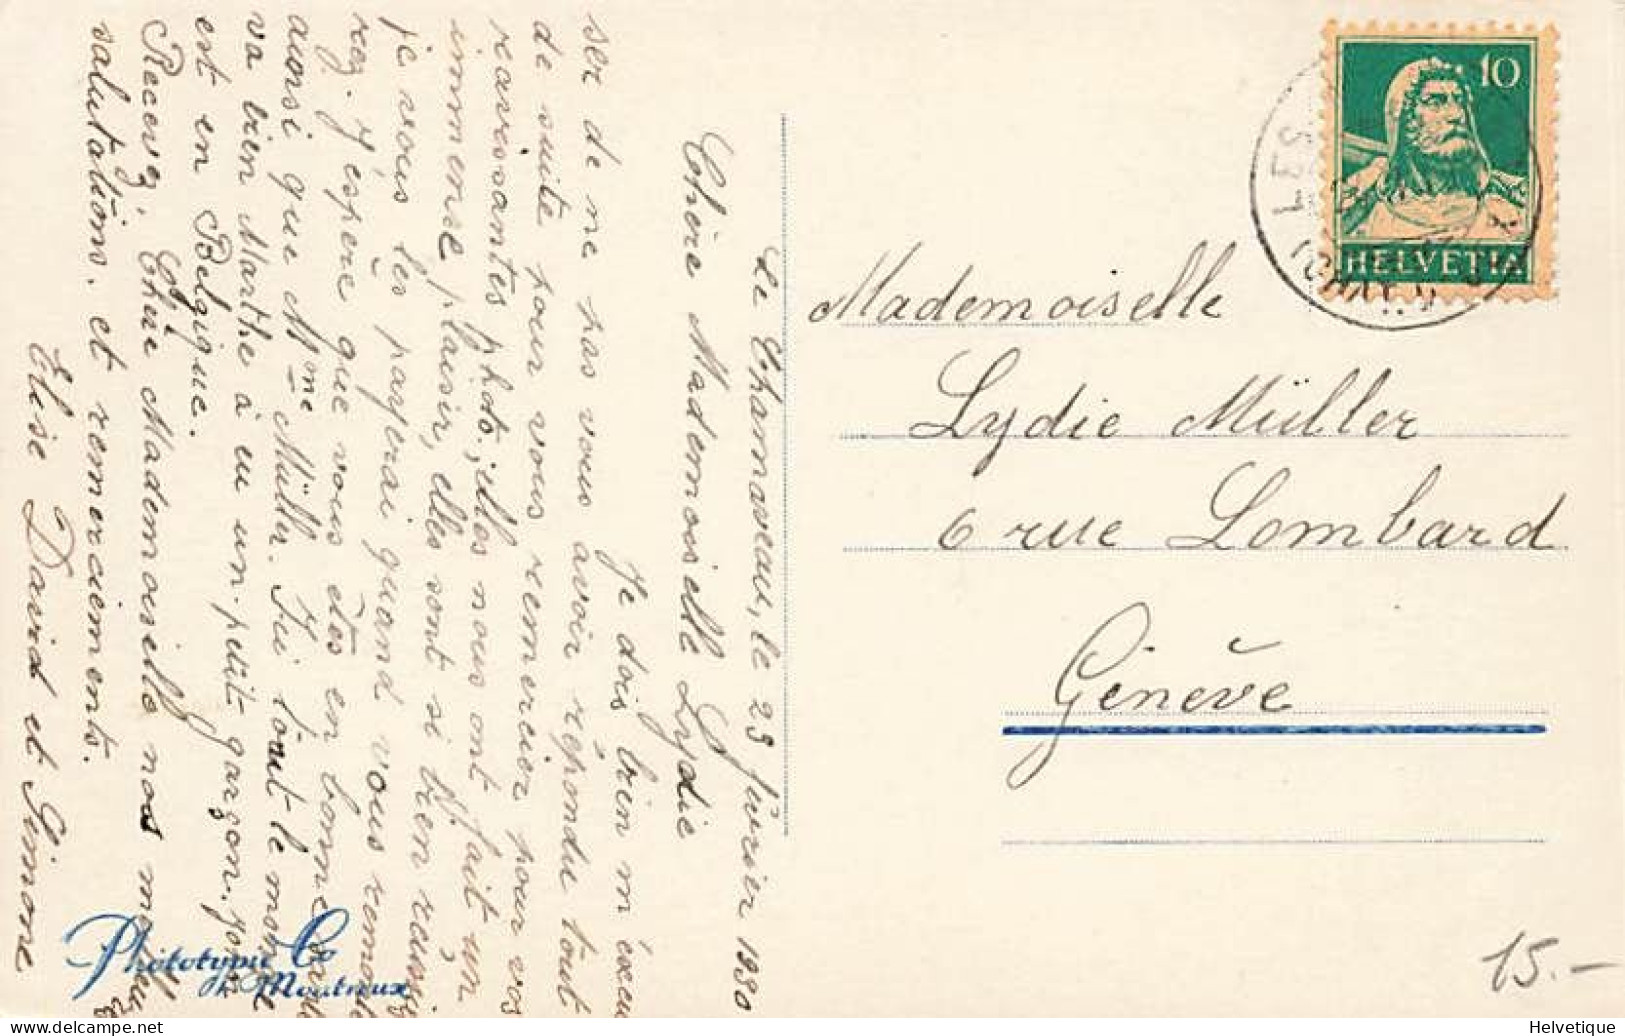 Le Chamaveau, le 23 février 1930
Chère Mademoiselle Lydie
Je dois bien m'excu
ser de ne pas vous avoir répondu tout
de suite pour vous remercier pour vos
ravissantes photo, elles nous ont fait un
immense plaisir, elles sont si bien réussi
je vous les payerai quand vous
rez. J'éspère que vous êtes en bonne
ainsi que Mme Müller. Ici tout le monde
va bien Marthe à eu un petit garçon.
est en Belgique.
Recevez, Chère Mademoiselle nos
salutations. et remerciements.
Elise David et Simone
Phototypie Co
Montreux
10
HELVETIA
LES
Mademoiselle
Lydie Müller
6 rue Lombard
Genève
15.-
delcampe.net
Helvetique